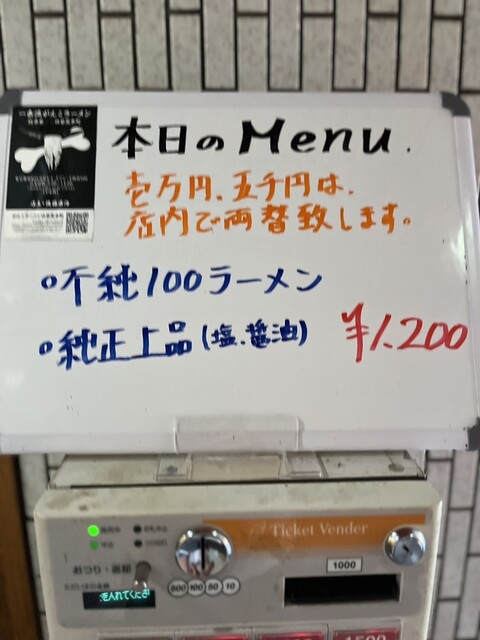 本日のMenu.
壱万円、五千円は、
店内で両替致します。
○不純100ラーメン
○純正上品(塩、醤油) ¥1,200
Ticket Vender
1000
おつり・返却
500 100 50 10
を入れてくださ